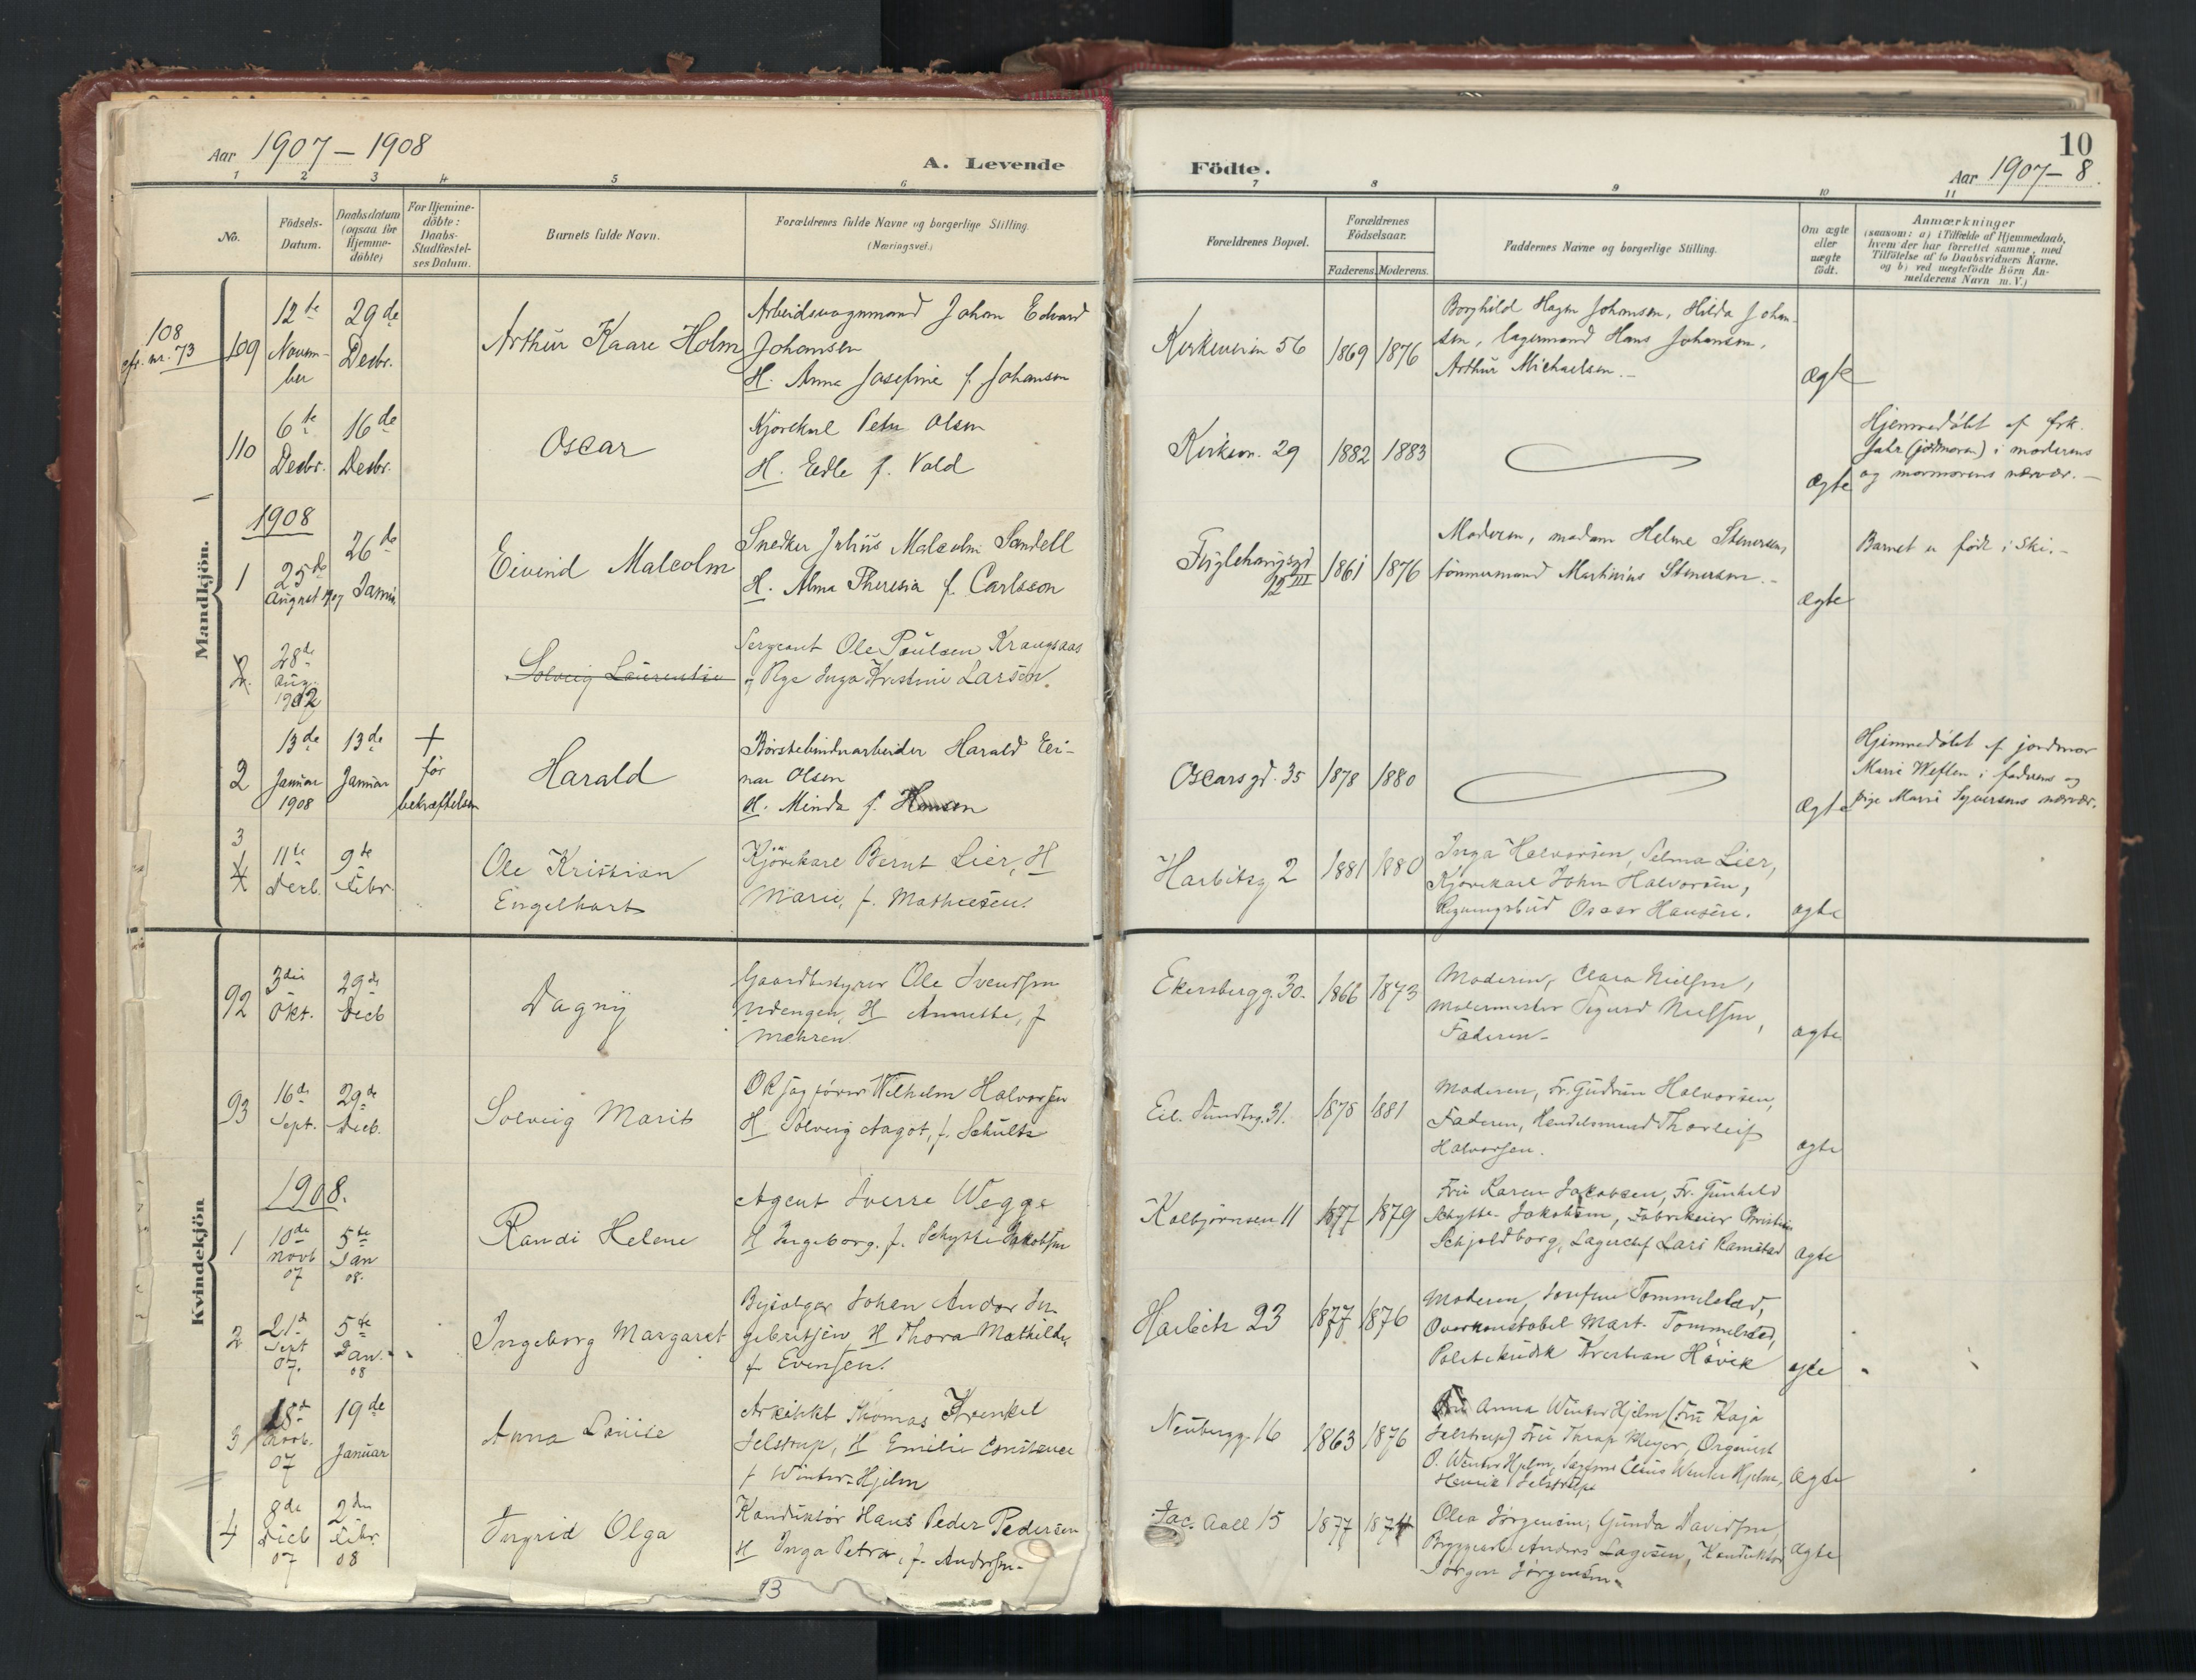 Aar 1907 – 1908
A. Levende
Födte.
10
Aar 1907 – 8.
1 2 3 4 5 6 7 8 9 10 11
No.
Födsels-
Datum.
Daabsdatum
(ogsaa for
Hjemme-
döbte)
For Hjemme-
döbte:
Daabs-
Stadfæstel-
ses Datum.
Barnets fulde Navn.
Forældrenes fulde Navne og borgerlige Stilling.
(Næringsvei.)
Forældrenes Bopæl.
Forældrenes
Födselsaar.
Faderens. Moderens.
Faddernes Navne og borgerlige Stilling.
Om ægte
eller
uægte
födt.
Anmærkninger
(saasom: a) i Tilfælde af Hjemmedaab,
hvem der har forrettet samme, med
Tilföielse af to Daabsvidners Navne.
og b) ved uægtefödte Börn An-
melderens Navn m.V.)
Mandkjön.
108
efr. nr. 73
109
12te
Novem-
ber
29de
Decbr.
Arthur Kaare Holm
Arbeidsvognmand Johan Edvard
Johansen
H. Anna Josefine f. Johansen
Kirkeveien 56
1869 1876
Borghild Hagm Johansen, Hilda Johan-
sen, lagermand Hans Johansen,
Arthur Michaelsen.–
ægte
110
6te
Decbr.
16de
Decbr.
Oscar
Kjørekarl Peter Olsen
H. Edle f. Vold
Kirkevn. 29
1882 1883
ægte
Hjemmedøbt af frk.
Jahr (jordmoren) i moderens
og mormorens nærvær.–
1908
1
25de
August 1907
26de
Januar
Eivind Malcolm
Snedker Julius Malcolm Sandell
H. Alma Theresia f. Carlsson
Fuglehauggd
12 III
1861 1876
Moderen, madam Helene Stenersen,
tømmermand Martinius Stenersen.–
ægte
Barnet er født i Ski.–
2.
28de
Aug.
1902
Solveig Laurentse
Sergeant Ole Paulsen Krangsaas
og Pge Inga Kristine Larsen.
2
13de
Januar
1908
13de
Januar
+
før
bekræftelsen
Harald
Børstebinderarbeider Harald Ei-
nar Olsen
H. Minda f. Hansen
Oscarsgd. 35
1878 1880
ægte
Hjemmedøbt af jordmor
Marie Weflen i faderens og
pige Marie Syversens nærvær.
3
4
11te
Decb.
9de
Febr.
Ole Kristian
Engelhart
Kjørekarl Bernt Lier, H
Marie, f. Mathiesen.
Harbitzg 2
1881 1880
Inga Halvorsen, Selma Lier,
Kjørekarl John Halvorsen,
Regningsbud Oscar Hansen.
ægte
Kvindekjön
92
3die
Okt.
29de
Decb
Dagny
Gaardbestyrer Ole Svendsen
Udengen, H Annette, f
Mehren.
Ekersbergg. 30.
1866 1873
Moderen, Clara Nielsen,
Malermester Sigurd Nielsen,
Faderen–
ægte
93
16de
Sept.
29de
Decb.
Solveig Marit
O R sagfører Wilhelm Halvorsen
H Solveig Aagot, f. Schultz
Eil. Sundtsg. 31.
1878 1881
Moderen, Fr. Gudrun Halvorsen,
Faderen, Handelsmand Thorleif
Halvorsen.
ægte
1908.
1
10de
Novb
07
5te
Jan
08.
Randi Helene
Agent Sverre Wegge
H Ingeborg. f. Schytte Jakobsen
Kolbjørnsen 11
1877 1879
Fru Karen Jakobsen, Fr. Gunhild
Schytte-Jakobsen, Fabrikeier Christian
Schjoldborg, Lagerchef Lars Ramstad
ægte
2
21de
Sept
07.
5te
Jan.
08
Ingeborg Margaret
Bysælger Johan Andor In-
gebritsen H Thora Mathilde,
f Evensen.
Harbitz 23
1877 1876
Moderen, Josefine Tommelstad,
Overkonstabel Mart. Tommelstad,
Politikudsk Kristian Høvik
ægte
3
18de
Novb.
07
19de
Januar
Anna Louise
Arkitekt Thomas Krenkel
Jelstrup, H Emilie Constance
f Winter-Hjelm
Neubergg. 16
1863 1876
Fru Anna Winter Hjelm (Fru Kaja
Jelstrup) Fru Thrap Meyer, Organist
O. Winter Hjelm, Sagfører Claus Winter Hjelm,
Henrik Jelstrup
ægte
4
8de
Decb
07
2den
Febr
08
Ingrid Olga
Konduktør Hans Peder Pedersen
H Inga Petra, f. Andersen.
Jac. Aall 15
1877 1874
Olea Jørgensen, Gunda Davidsen,
Bryggearb Anders Lagesen, Konduktør
Jørgen Jørgensen.
ægte
13